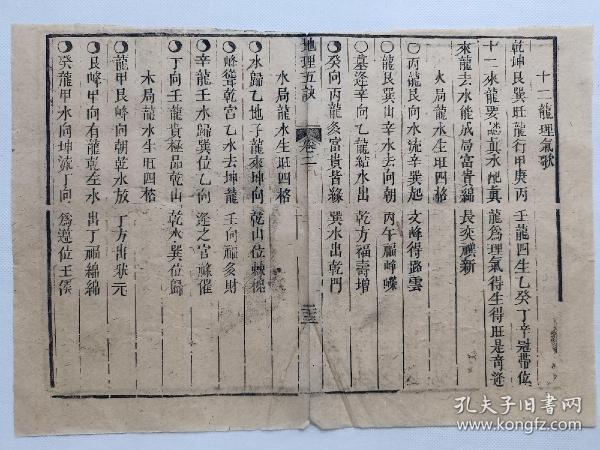 十二龍理氣歌
乾坤艮巽旺龍行甲庚丙 壬龍四生乙癸丁辛冠帶位
十二來龍要認真水配真 龍爲理氣得生得旺是奇逢
來龍去水能成局富貴綿 長奕禩新
火局龍水生旺四格
丙龍艮向水流辛巽起 文峰得路雲
龍艮巽山辛水去向朝 丙午福峰
墓逢辛向乙龍結水出 乾方福壽增
癸向丙龍多富貴皆緣 巽水出乾門
地理五訣
卷二
二十三
水局龍水生旺四格
水歸乙地子龍來坤向 乾山位棘槐
峰聳乾宮乙水去坤龍 壬向福多財
辛龍壬水歸巽位乙向 逢之官祿催
丁向壬龍貴極品乾山 乾水巽位歸
木局龍水生旺四格
龍甲艮峰向朝乾水放 丁方出狀元
艮峰甲向有龍乾左水 出丁福綿綿
癸龍甲水向坤流丁向 爲遵位王侯
孔夫子旧书网
www.kongfz.com